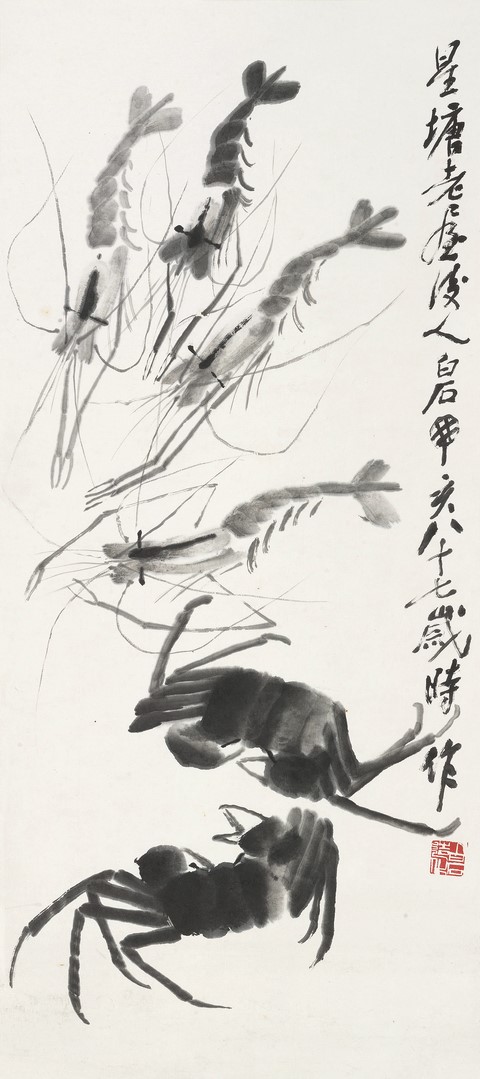 星塘老屋後人白石草衣八十七歲時作